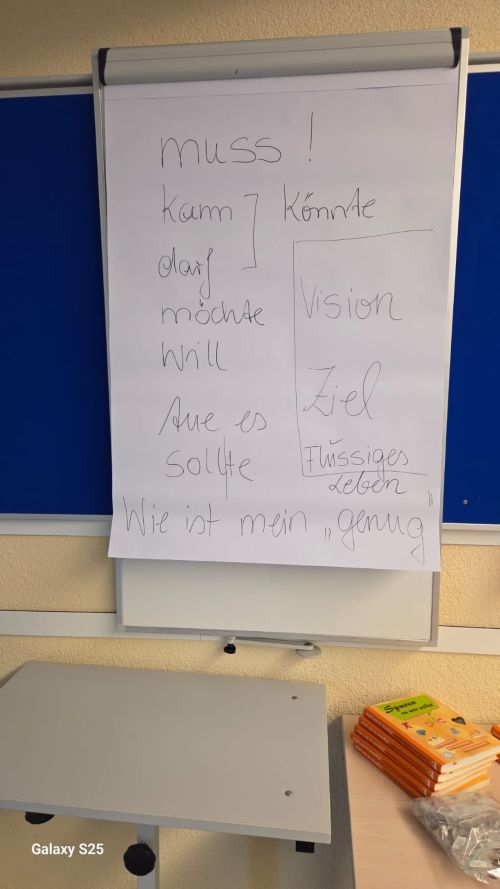 muss !
kann ] könnte
darf
möchte
Will
Vision
Ziel
Tue es
sollte
Flüssiges
Leben
Wie ist mein „genug"
Sparen
Galaxy S25